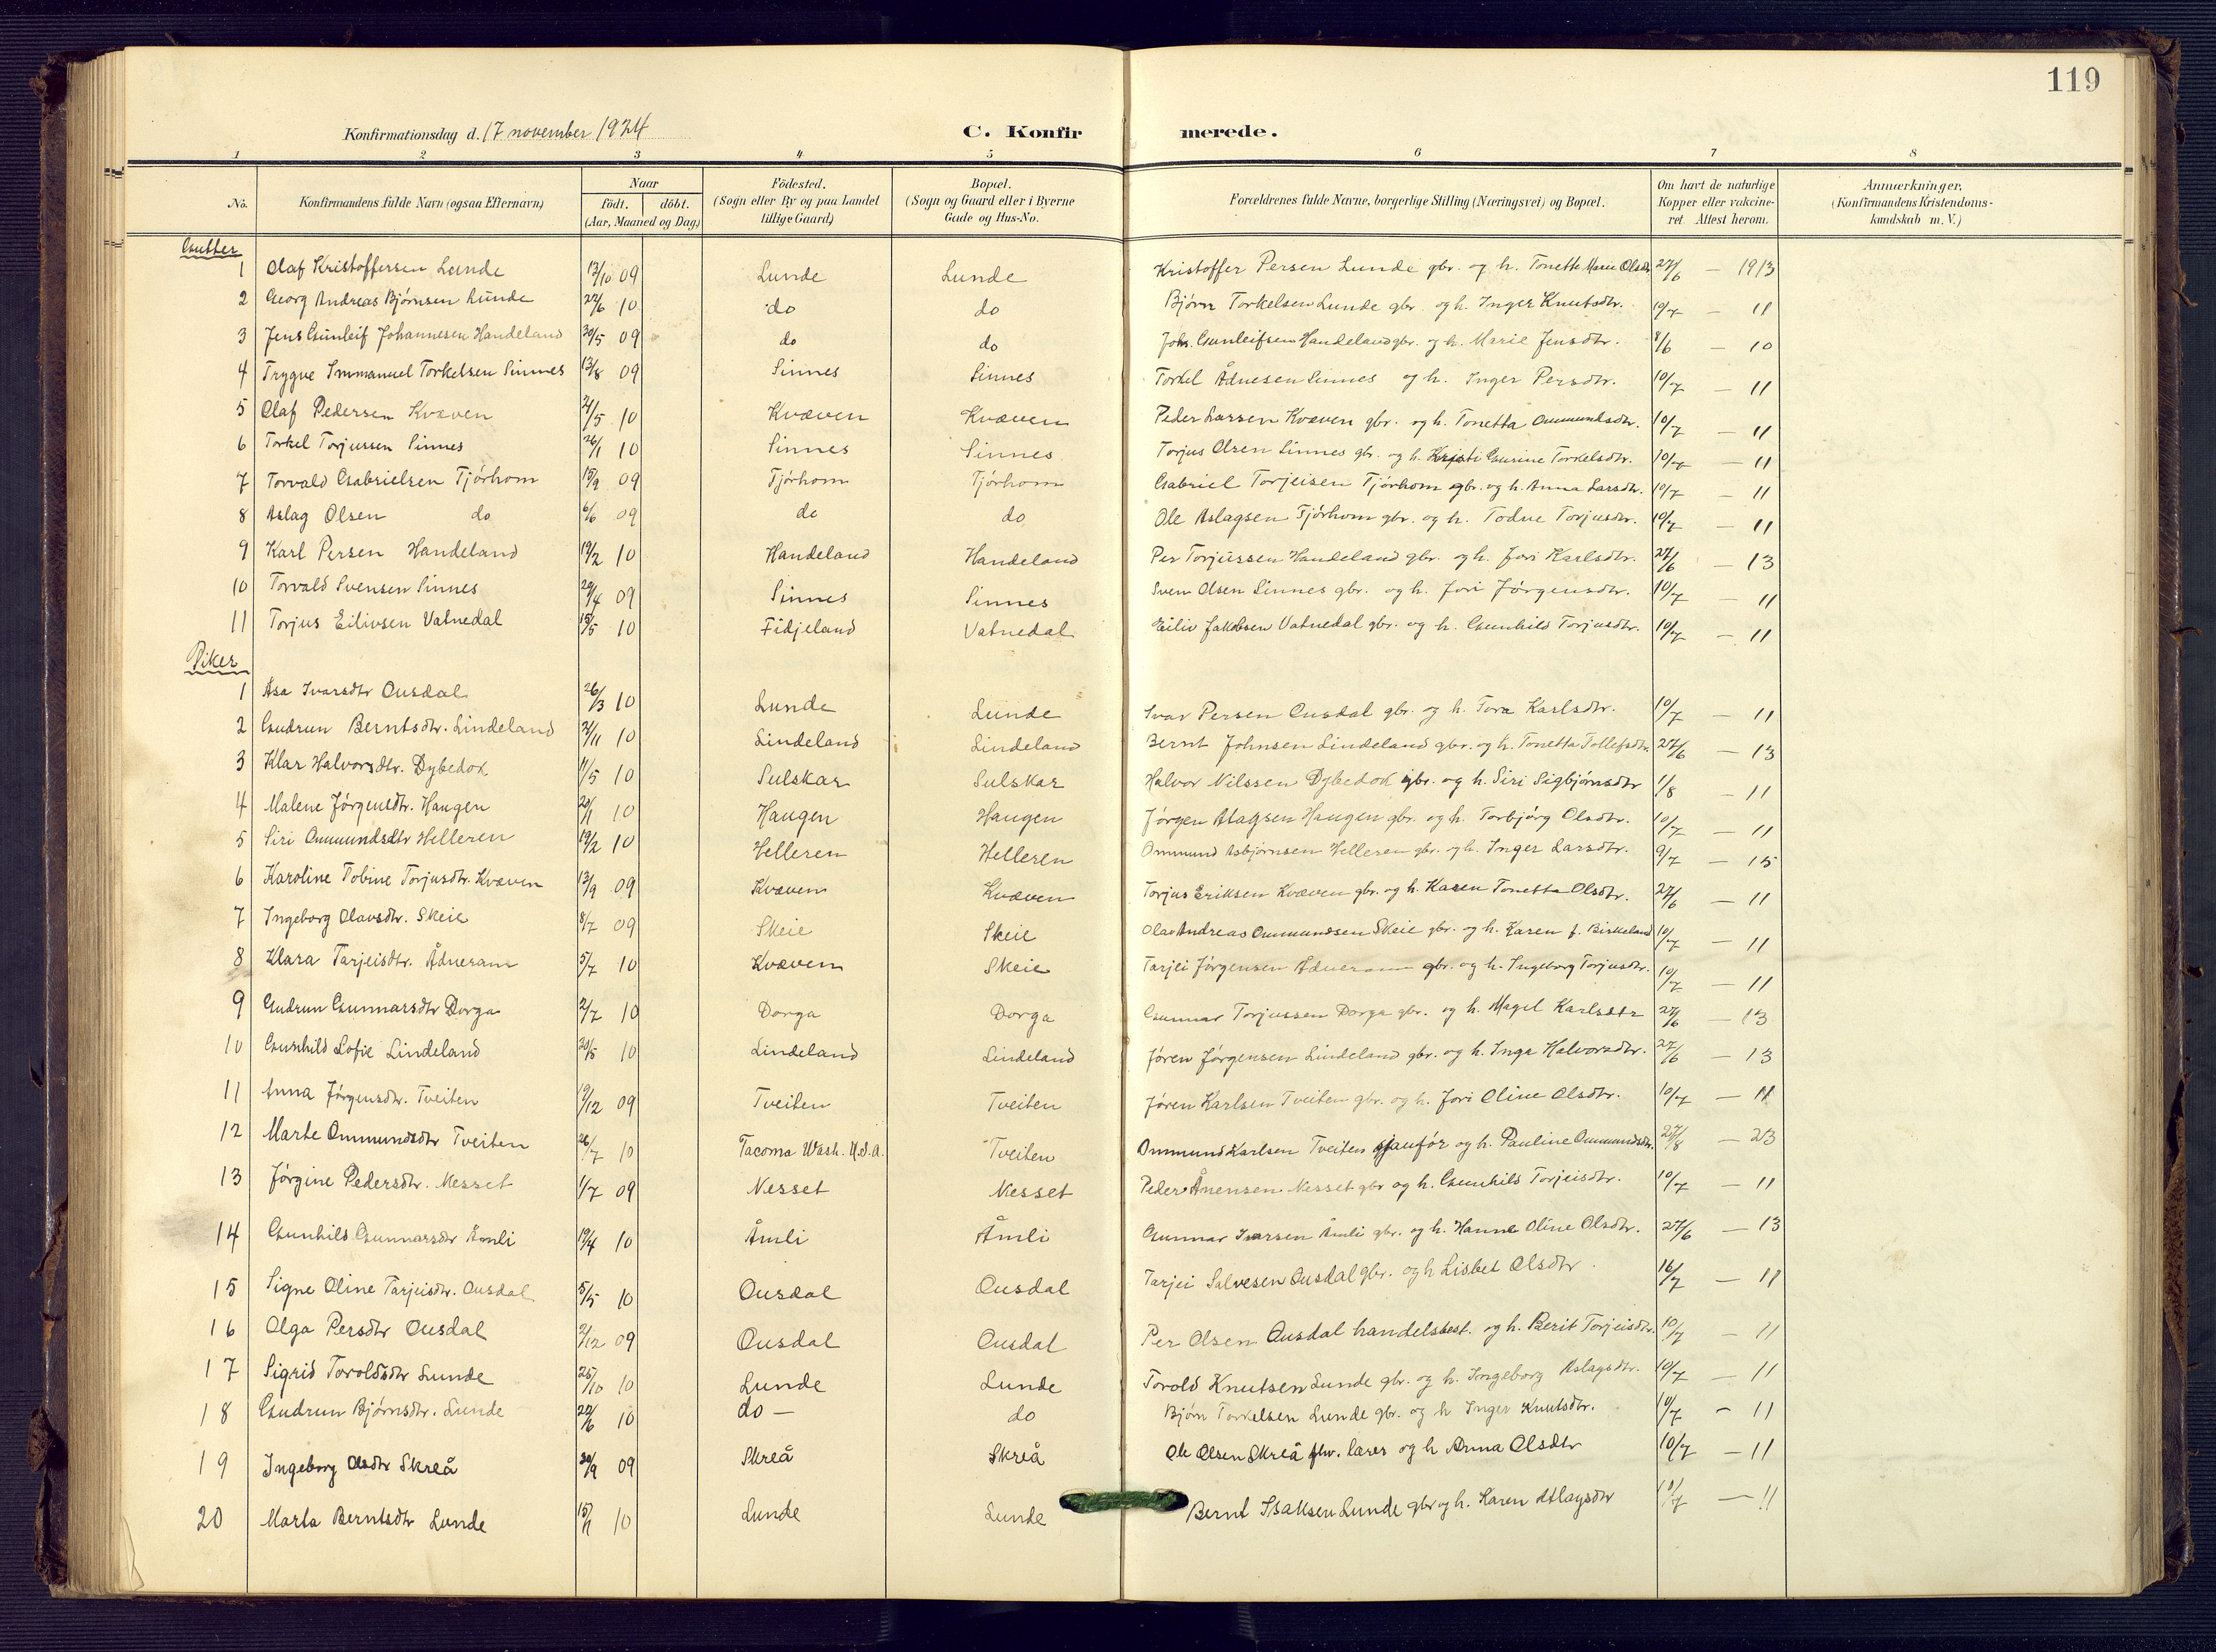 119
Konfirmationsdag d. 17 november 1924 C. Konfirmerede.
1 2 3 4 5 6 7 8
No. Konfirmandens fulde Navn (ogsaa Efternavn) Naar födt. döbt. (Aar, Maaned og Dag) Födested. (Sogn eller By og paa Landet tillige Gaard) Bopæl. (Sogn og Gaard eller i Byerne Gade og Hus-No. Forældrenes fulde Navne, borgerlige Stilling (Næringsvei) og Bopæl. Om havt de naturlige Kopper eller vakcineret Attest herom. Anmærkninger. (Konfirmandens Kristendomskundskab m. V.)
Gutter
1 Olaf Kristoffersen Lunde 13/10 09 Lunde Lunde Kristoffer Persen Lunde gbr. og h. Tonette Marie Olsdtr 27/6 — 1913
2 Georg Andreas Bjørnsen Lunde 22/6 10 do do Bjørn Torkelsen Lunde gbr. og h. Inger Knutsdtr. 10/7 — 11
3 Jens Gunleif Johannesen Handeland 30/5 09 do do Joh. Gunleifsen Handeland gbr. og h. Marie Jensdtr. 8/6 — 10
4 Trygve Immanuel Torkelsen Sinnes 13/8 09 Sinnes Sinnes Torkel Ådnesen Sinnes og h. Inger Persdtr. 10/7 — 11
5 Olaf Pedersen Kvæven 21/5 10 Kvæven Kvæven Peder Larsen Kvæven gbr. og h. Tonetta Ommundsdtr. 10/7 — 11
6 Torkel Torjussen Sinnes 26/1 10 Sinnes Sinnes Torjus Olsen Sinnes gbr. og h. Kristi Gurine Torkelsdtr. 10/7 — 11
7 Torvald Gabrielsen Tjórhom 15/9 09 Tjórhom Tjórhom Gabriel Torjeisen Tjórhom gbr. og h. Anna Larsdtr. 10/7 — 11
8 Aslag Olsen do 6/6 09 do do Ole Aslagsen Tjórhom gbr. og h. Todne Torjusdtr. 10/7 — 11
9 Karl Persen Handeland 19/2 10 Handeland Handeland Per Torjussen Handeland gbr. og h. Jori Karlsdtr. 27/6 — 13
10 Torvald Svensen Sinnes 29/4 09 Sinnes Sinnes Sven Olsen Sinnes gbr. og h. Jori Jórgensdtr. 10/7 — 11
11 Torjus Eilivsen Vatnedal 15/5 10 Fidjeland Vatnedal Eiliv Jakobsen Vatnedal gbr. og h. Gunhild Torjusdtr. 10/7 — 11
Piker
1 Åsa Ivarsdtr Ousdal 26/3 10 Lunde Lunde Ivar Persen Ousdal gbr. og h. Tora Karlsdtr. 10/7 — 11
2 Gudrun Berntsdtr. Lindeland 21/11 10 Lindeland Lindeland Bernt Johnsen Lindeland gbr. og h. Tonetta Tollefsdtr. 27/6 — 13
3 Klar Halvorsdtr. Dybedok 11/5 10 Sulskar Sulskar Halvor Nilssen Dybedok gbr. og h. Siri Sigbjórnsdtr 1/8 — 11
4 Malene Jórgensdtr. Haugen 20/1 10 Haugen Haugen Jórgen Aslagsen Haugen gbr. og h. Torbjórg Olsdtr. 10/7 — 11
5 Siri Ommundsdtr Helleren 19/2 10 Helleren Helleren Ommund Asbjórnsen Helleren gbr. og h. Inger Larsdtr. 9/7 — 15
6 Karoline Tobine Torjusdtr. Kvæven 13/9 09 Kvæven Kvæven Torjus Eriksen Kvæven gbr. og h. Karen Tonetta Olsdtr. 27/6 — 11
7 Ingeborg Olavsdtr. Skeie 8/7 09 Skeie Skeie Olav Andreas Ommundsen Skeie gbr. og h. Karen f. Birkeland 10/7 — 11
8 Klara Tarjeisdtr. Ådneram 5/7 10 Kvæven Skeie Tarjei Jórgensen Ådneram gbr. og h. Ingeborg Torjusdtr. 10/7 — 11
9 Gudrun Gunnarsdtr Dorga 2/7 10 Dorga Dorga Gunnar Torjussen Dorga gbr. og h. Magel Karlsdtr 27/6 — 13
10 Gunhild Sofie Lindeland 30/5 10 Lindeland Lindeland Jóren Jórgensen Lindeland gbr. og h. Inga Halvorsdtr. 27/6 — 13
11 Anna Jórgensdtr. Tveiten 19/12 09 Tveiten Tveiten Jóren Karlsen Tveiten gbr. og h. Jori Oline Olsdtr. 10/7 — 11
12 Marte Ommundsdtr Tveiten 26/7 10 Tacoma Wash. U.S.A. Tveiten Ommund Karlsen Tveiten sjaufór og h. Pauline Ommundsdtr. 27/8 — 23
13 Jórgine Pedersdtr. Nesset 1/7 09 Nesset Nesset Peder Ånensen Nesset gbr og h. Gunhild Torjeisdtr. 10/7 — 11
14 Gunhild Gunnarsdtr Åmli 19/4 10 Åmli Åmli Gunnar Ivarsen Åmli gbr. og h. Hanne Oline Olsdtr. 27/6 — 13
15 Signe Oline Tarjeisdtr. Ousdal 5/5 10 Ousdal Ousdal Tarjei Salvesen Ousdal gbr. og h Lisbet Olsdtr. 16/7 — 11
16 Olga Persdtr Ousdal 2/12 09 Ousdal Ousdal Per Olsen Ousdal handelsbest. og h. Berit Torjeisdtr. 10/7 — 11
17 Sigrid Toroldsdtr Lunde 25/10 10 Lunde Lunde Torold Knutsen Lunde gbr. og h. Ingeborg Aslagsdtr. 10/7 — 11
18 Gudrun Bjórnsdtr. Lunde 22/6 10 do — do Bjórn Torkelsen Lunde gbr. og h Inger Knutsdtr. 10/7 — 11
19 Ingeborg Olsdtr Skreå 20/9 09 Skreå Skreå Ole Olsen Skreå fhv. lærer og h Anna Olsdtr 10/7 — 11
20 Marta Berntsdtr Lunde 15/1 10 Lunde Lunde Bernt Isaksen Lunde gbr og h. Karen Atlagsdtr 10/7 — 11